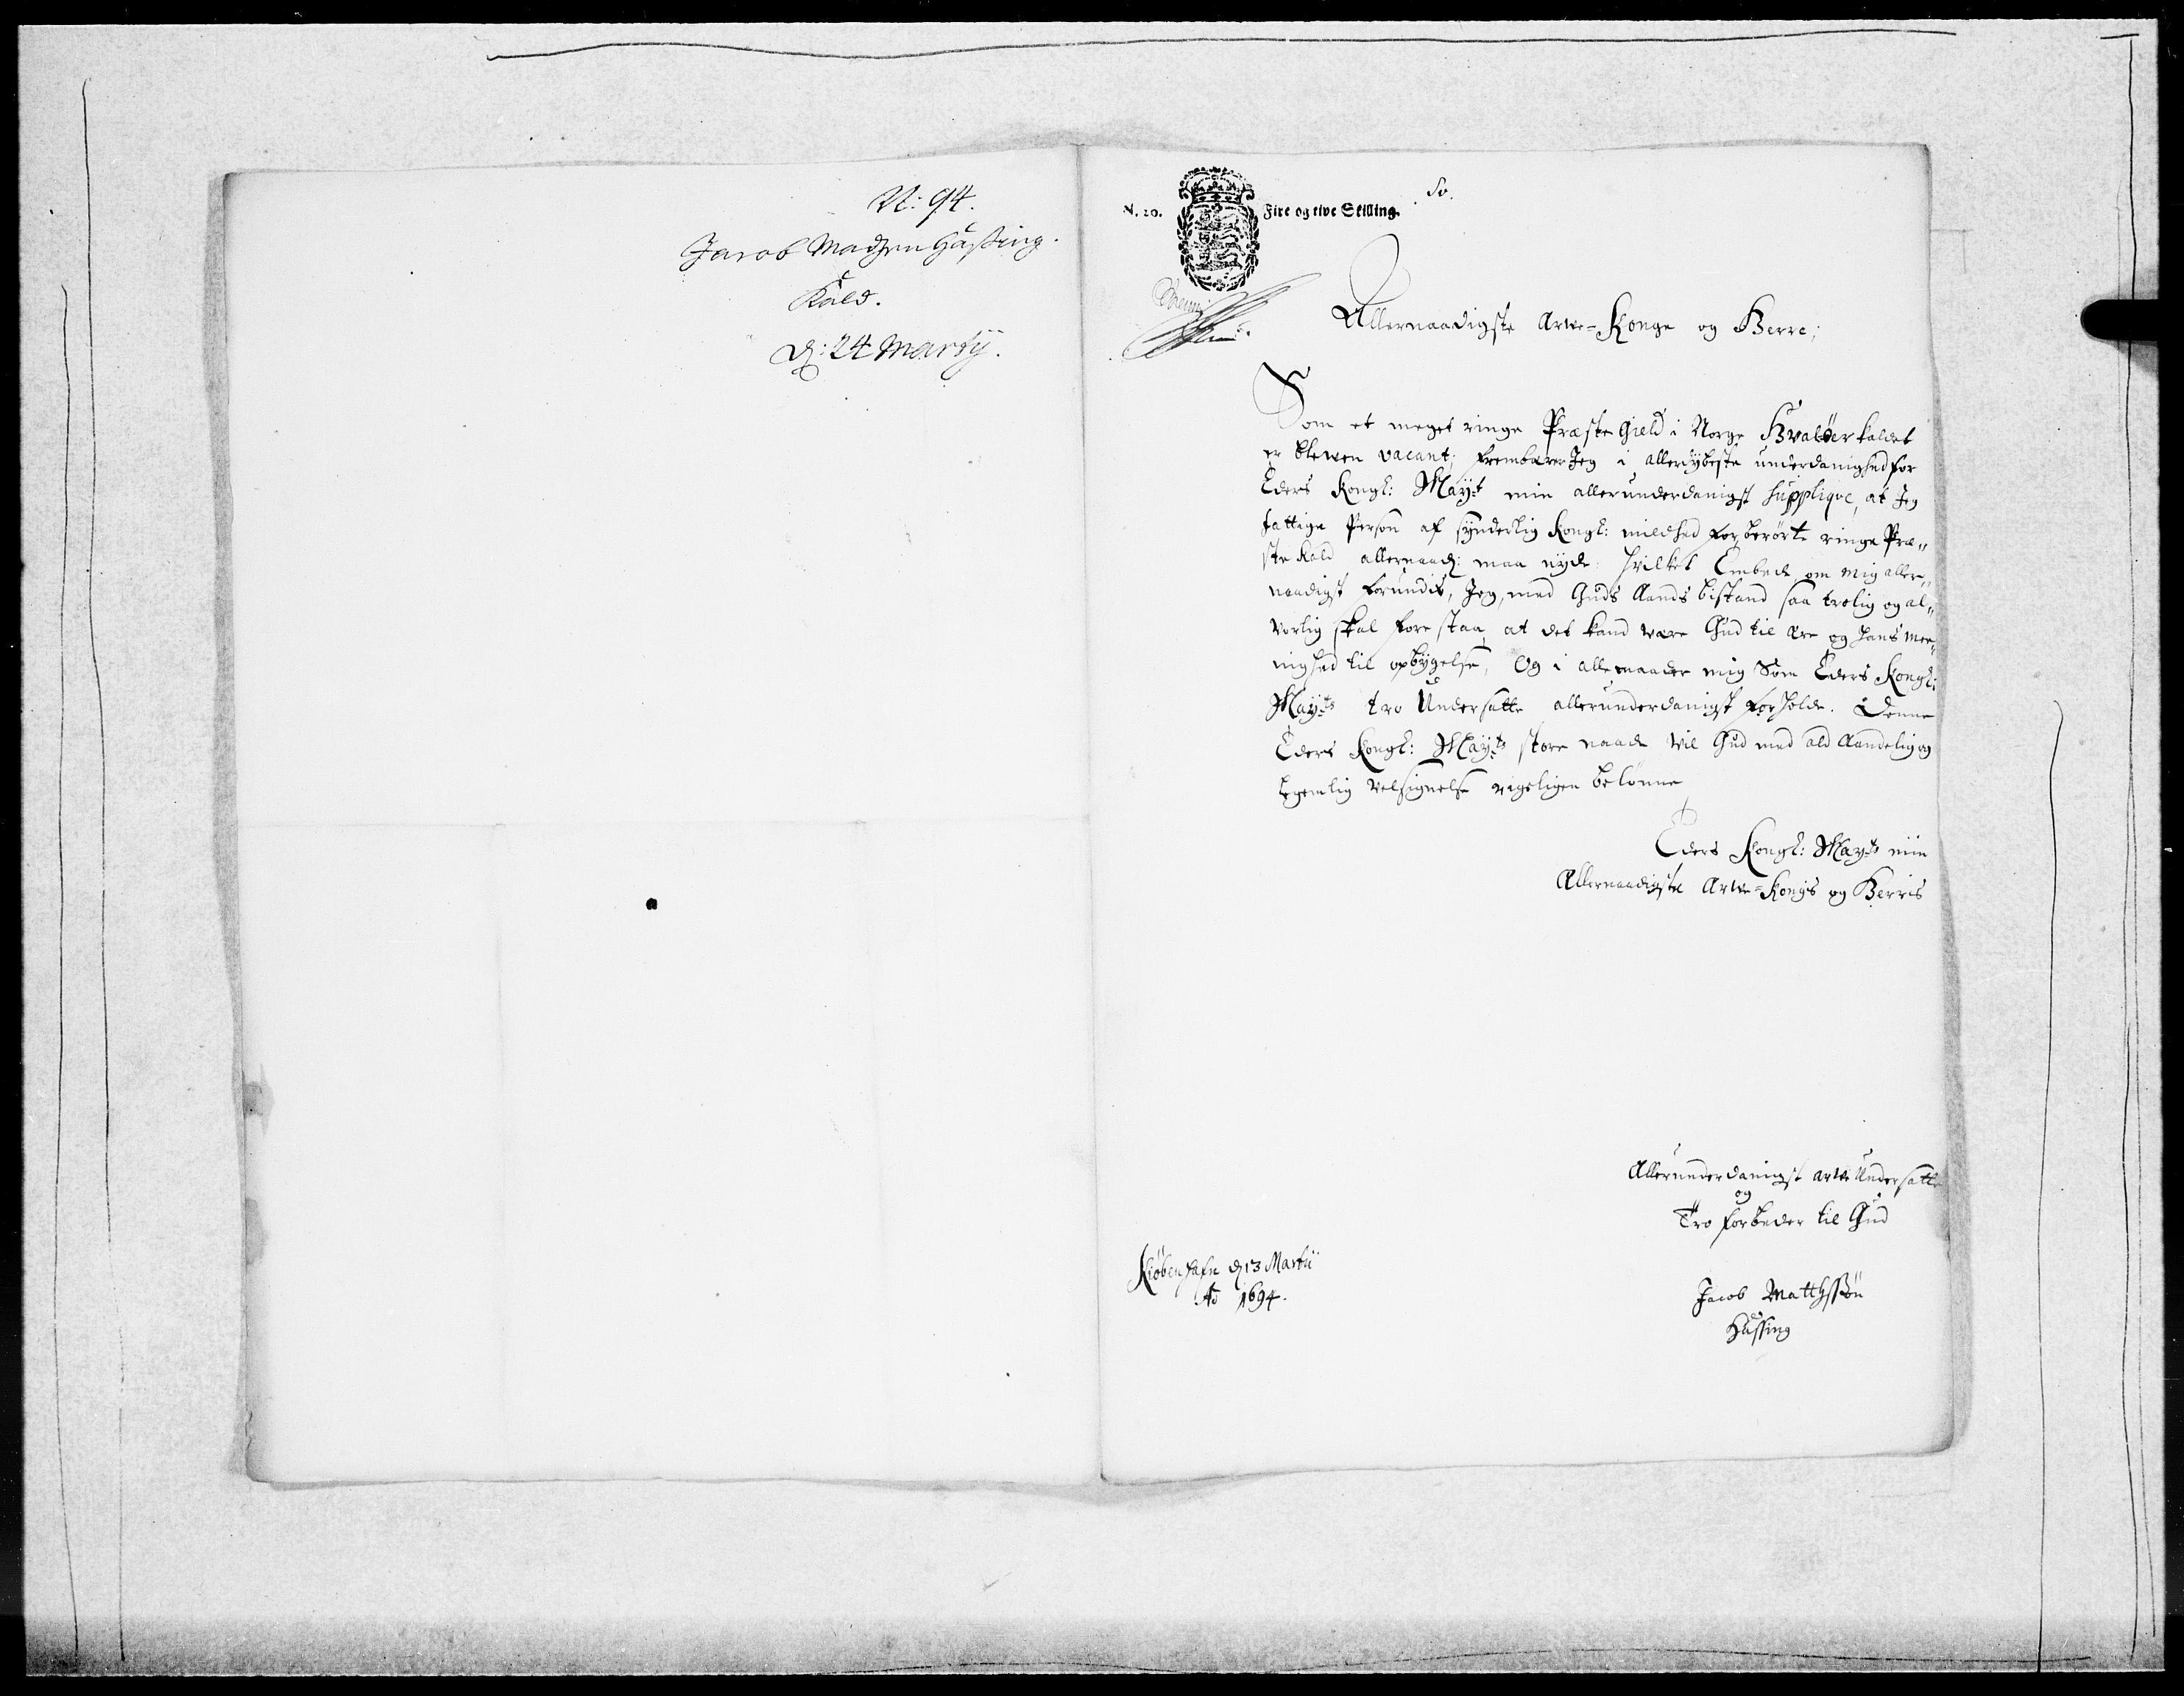 N: 94.
Jacob Madzen Hussing.
Kald.
D: 24 Martij.
N. 20.
Fire og tive Skilling.
Allernaadigste Arve-Konge og Herre;
Som et meget ringe Præste Gield i Norge Hvaløer kaldet
er bleven vacant; frembærer Jeg i allerdybeste underdanighed for
Eders Kongl: May:t min allerunderdanigst supplique, at Jeg
fattige Person af synderlig Kongl: mildhed forberørte ringe Præ„
ste Kald allernaad: maa nyde: hvilket Embede om mig aller„
naadigst forundis, Jeg, med Guds Aands bistand saa trolig og al„
vorlig skal forestaa, at det kand være Gud til Ære og hans mee„
nighed til opbygelse, Og i alle maader mig Som Eders Kongl:
May:ts tro Undersatte allerunderdanigst forholde. Denne
Eders Kongl: May:ts store naade vil Gud med ald Aandelig og
legemlig velsignelse rigeligen belønne
Eders Kongl: May:ts min
Allernaadigste Arve-Kongis og Herris
Allerunderdanigst arve Undersatte
og
Tro forbeder til Gud
Kiøbenhafn d 13 Martii
Ao 1694.
Jacob Matthssøn
Hussing